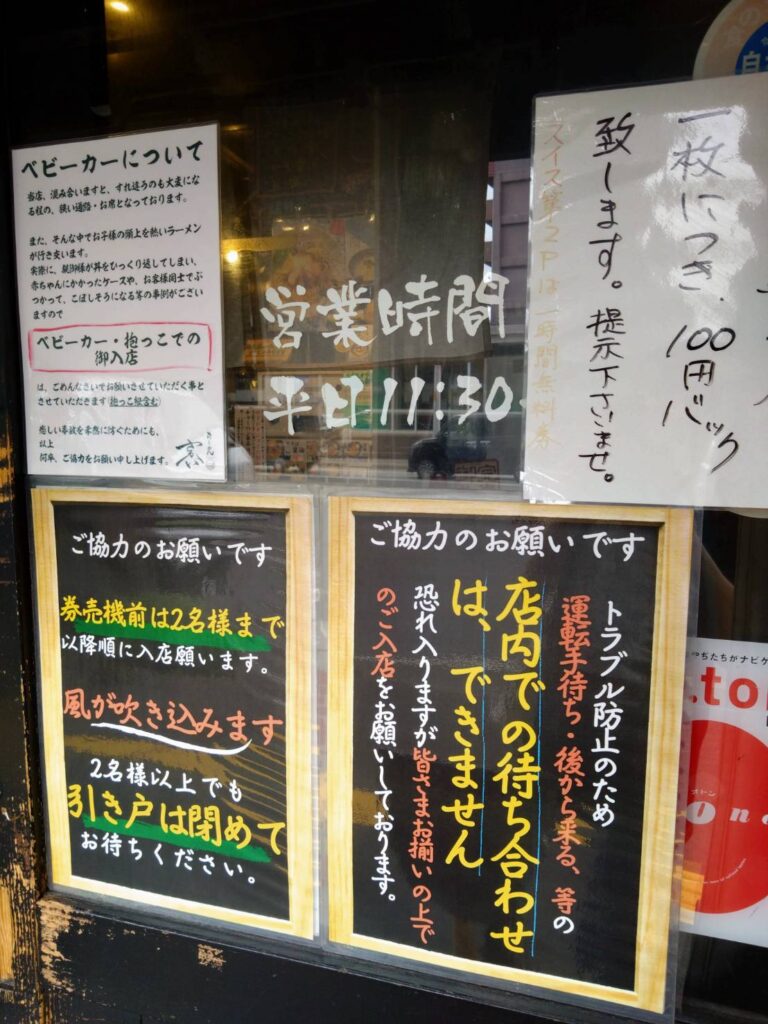 ベビーカーについて
当店、混み合いますと、すれ違うのも大変にな
る程の、狭い通路・お席となっております。
また、そんな中でお子様の頭上を熱いラーメン
が行き交います。
実際に、親御様が丼をひっくり返してしまい、
赤ちゃんにかかったケースや、お客様同士でぶ
つかって、こぼしそうになる等の事例がござい
ますので
ベビーカー・抱っこでの
御入店
は、ごめんなさいでお願いさせていただく事と
させていただきます(抱っこ紐含む)
悲しい事故を未然に防ぐためにも、
以上
何卒、ご協力をお願い申し上げます。
営業時間
平日11:30
一枚につき、100円バック
致します。提示下さいませ。
スイス第2Pは一時間無料券
ご協力のお願いです
券売機前は2名様まで
以降順に入店願います。
風が吹き込みます
2名様以上でも
引き戸は閉めて
お待ちください。
ご協力のお願いです
トラブル防止のため
運転手待ち・後から来る、等の
店内での待ち合わせ
は、できません
恐れ入りますが皆さまお揃いの上で
のご入店をお願いしております。